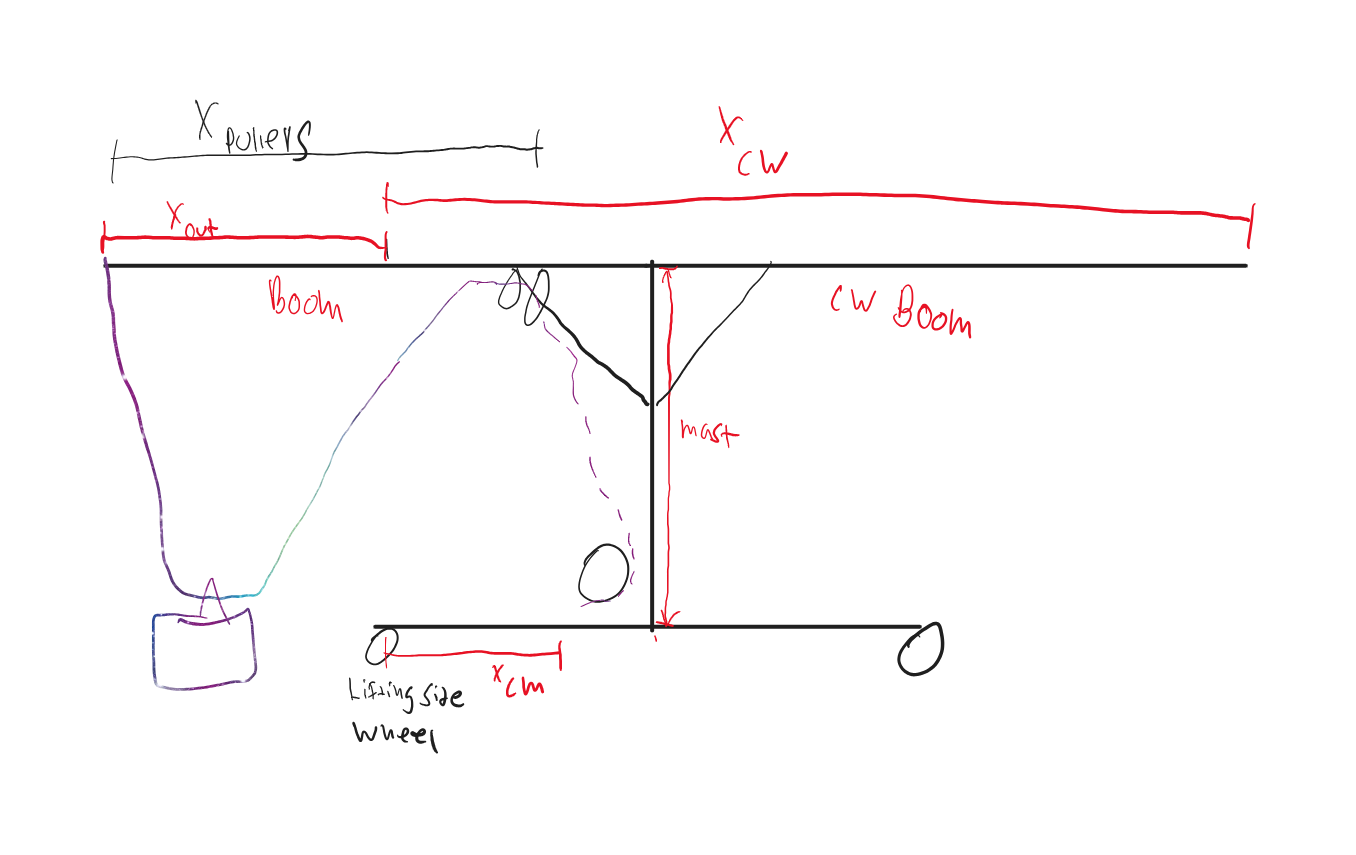 X pullers
X CW
X out
Boom
CW Boom
mast
x cm
Lifting side
wheel